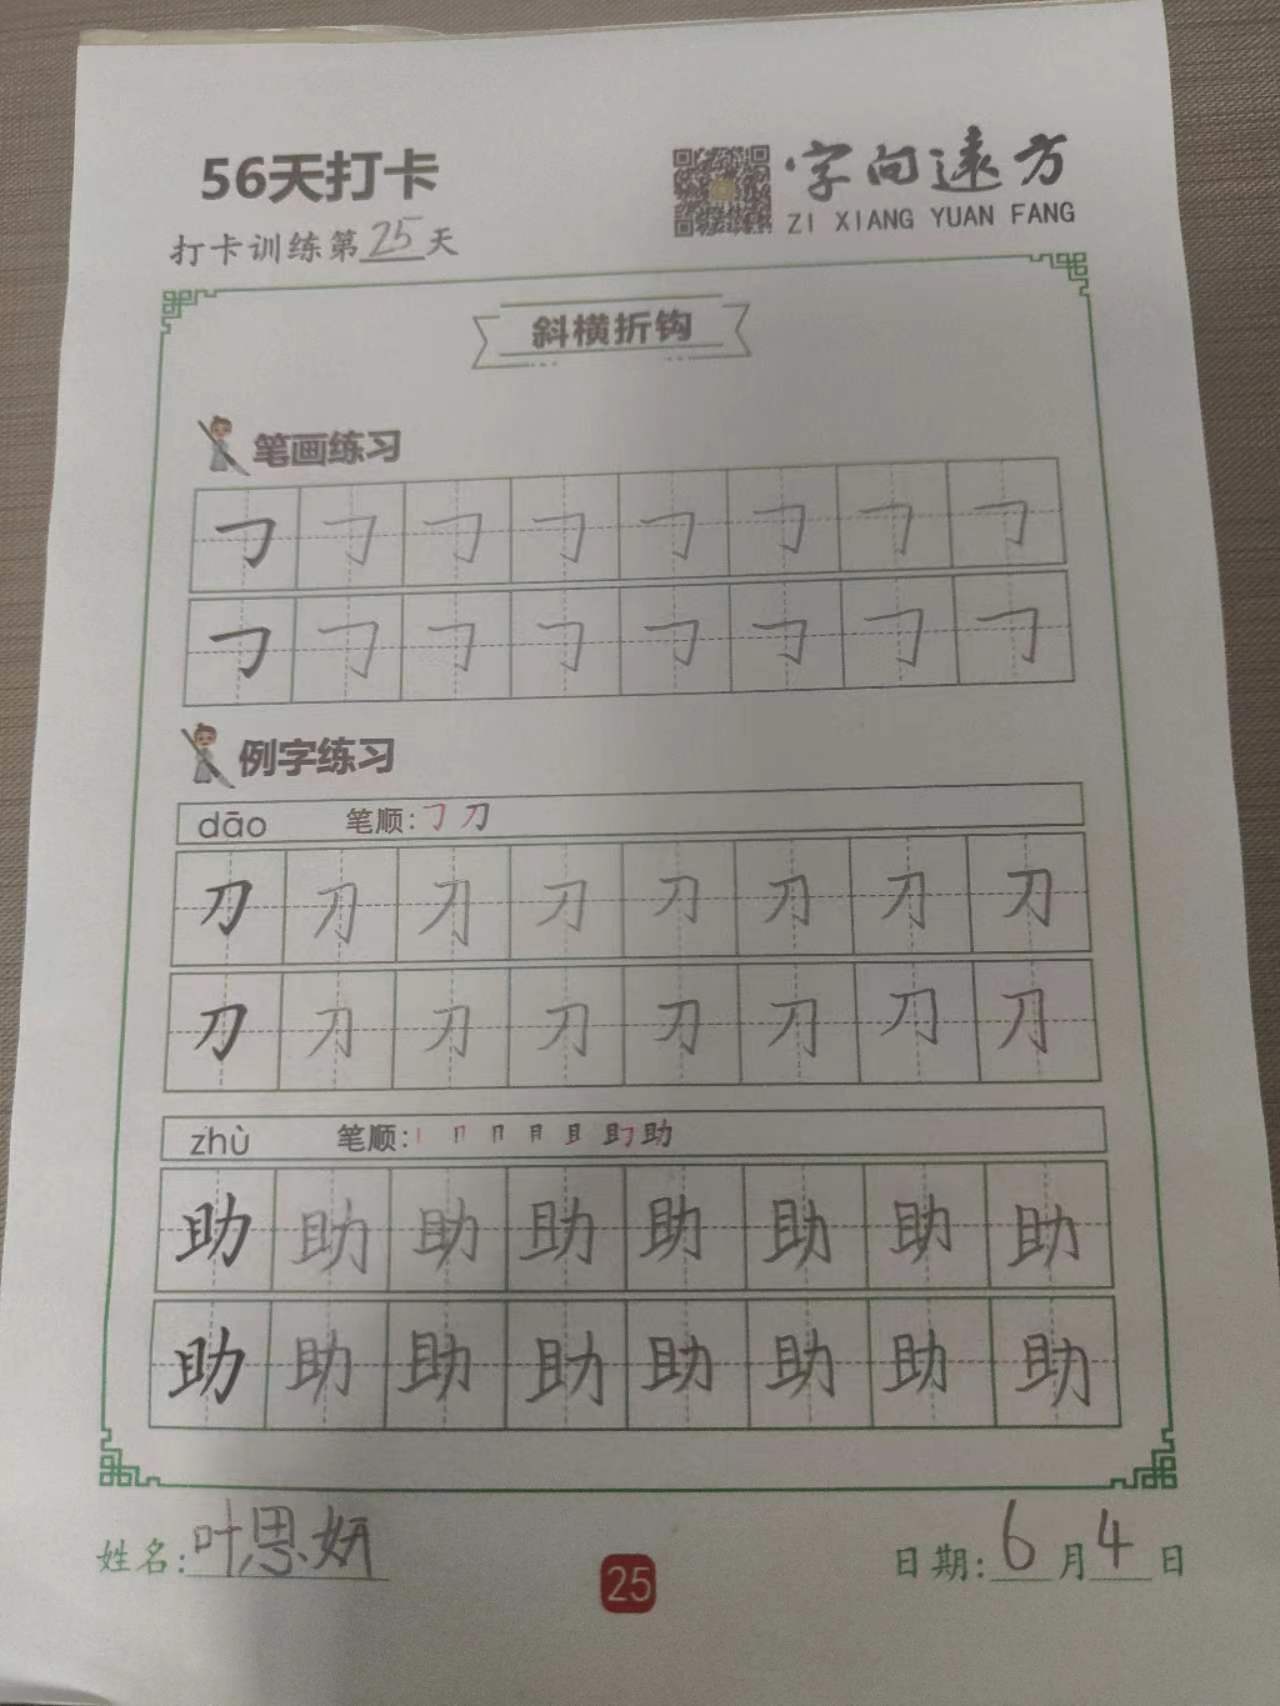 56天打卡
字向远方
ZI XIANG YUAN FANG
打卡训练第25天
斜横折钩
笔画练习
㇆ ㇆ ㇆ ㇆ ㇆ ㇆ ㇆ ㇆
㇆ ㇆ ㇆ ㇆ ㇆ ㇆ ㇆ ㇆
例字练习
dāo 笔顺:㇆ 刀
刀 刀 刀 刀 刀 刀 刀 刀
刀 刀 刀 刀 刀 刀 刀 刀
zhù 笔顺: 助
助 助 助 助 助 助 助 助
助 助 助 助 助 助 助 助
姓名:叶思妍
25
日期:6月4日